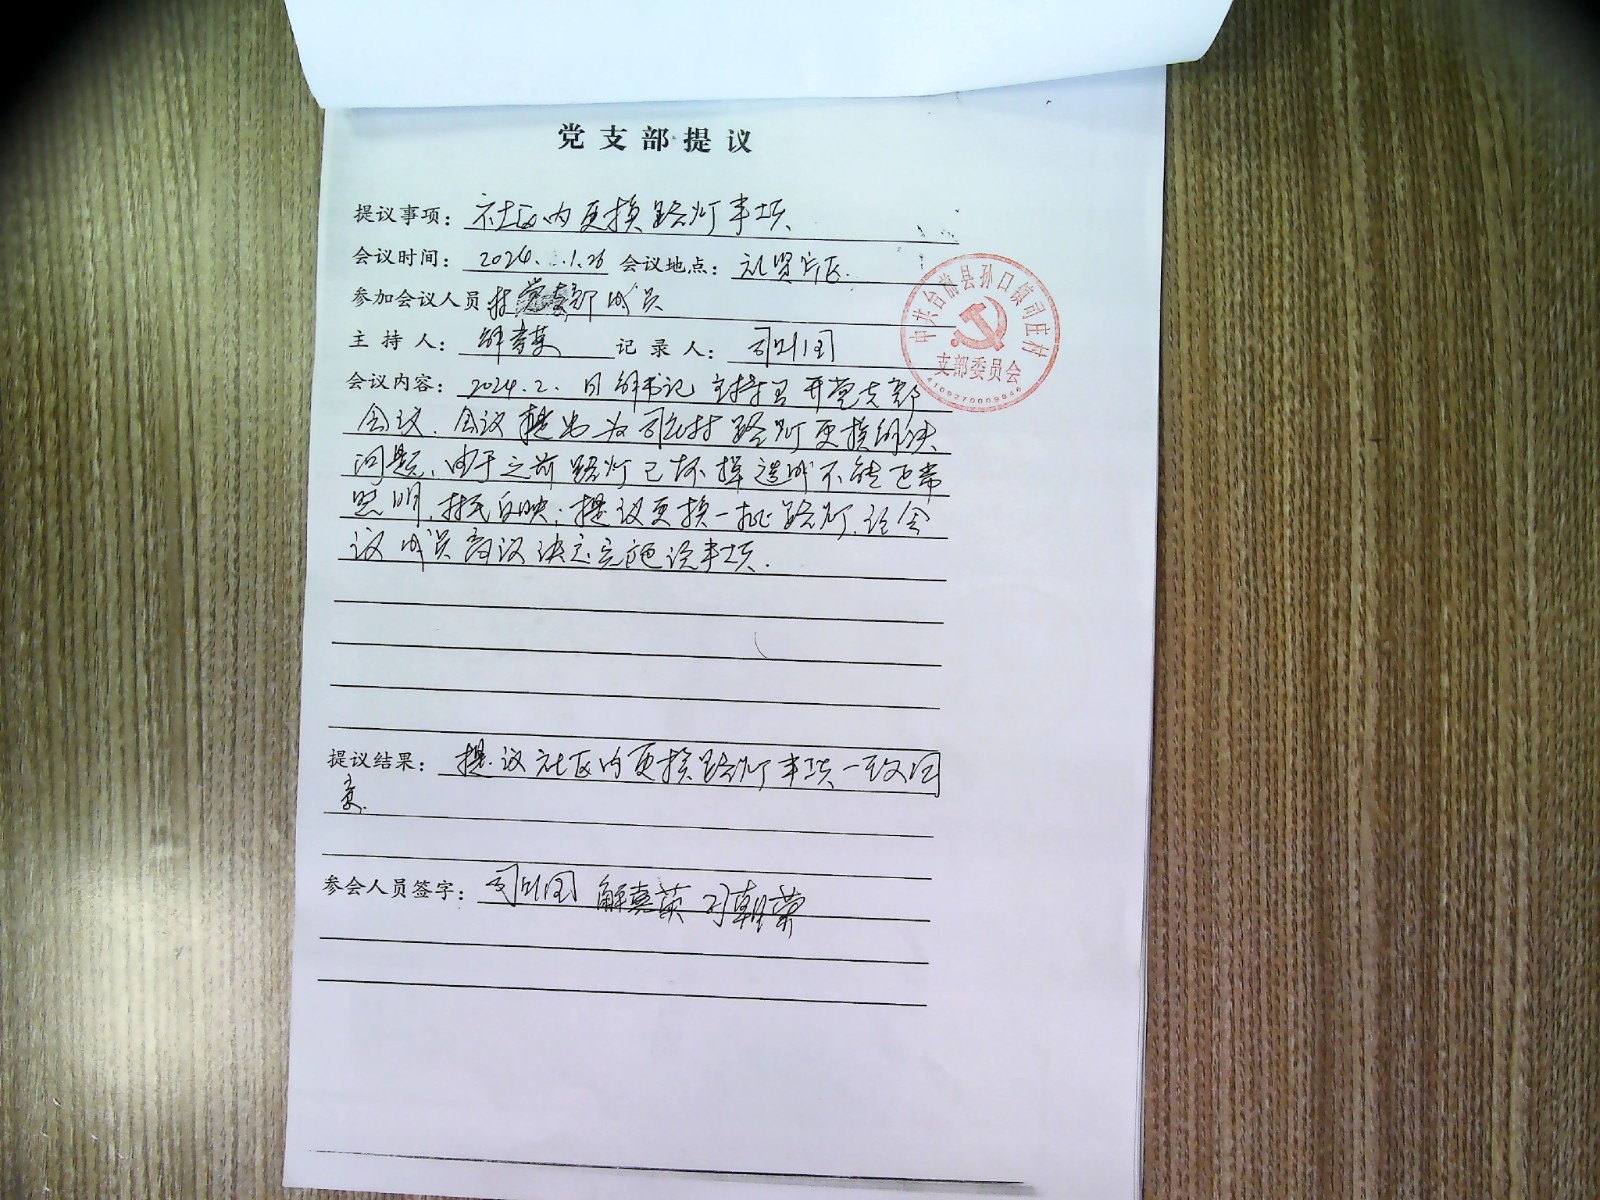 党支部提议
提议事项：社区内更换路灯事项
会议时间：2024. 1.26 会议地点：礼贤片区.
参加会议人员 村党支部成员
主持人： 记录人：
会议内容：2024.2. 日解书记主持召开党支部
会议. 会议提出为司庄村路灯更换解决
问题、由于之前路灯已坏掉造成不能正常
照明，村民反映；提议更换一批路灯，经会
议成员商议决定实施该事项.
提议结果：提议社区内更换路灯事项一致同
意.
参会人员签字：
中共台前县孙口镇司庄村
支部委员会